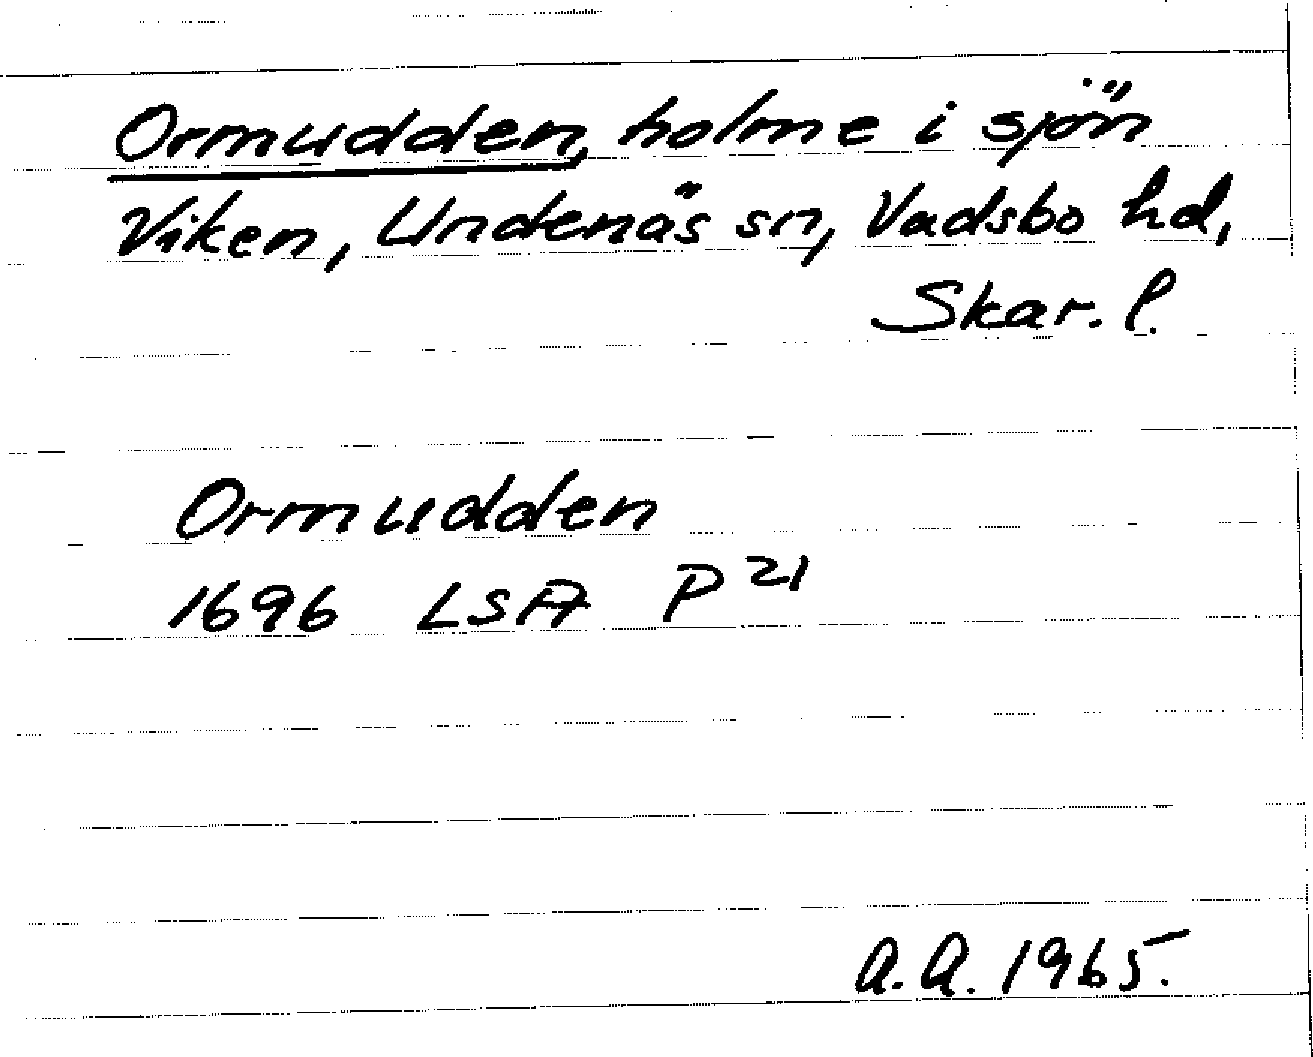 Ormudden, holme i sjön
Viken, Undenäs sn, Vadsbo hd,
Skar. l.
Ormudden
1696 LSA P 21
A.A. 1965.